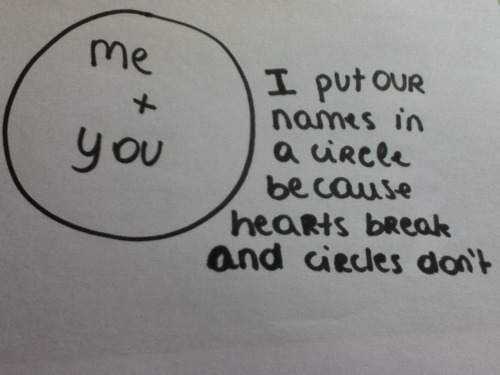 me
+
you
I put OUR
names in
a circle
because
hearts break
and circles don't